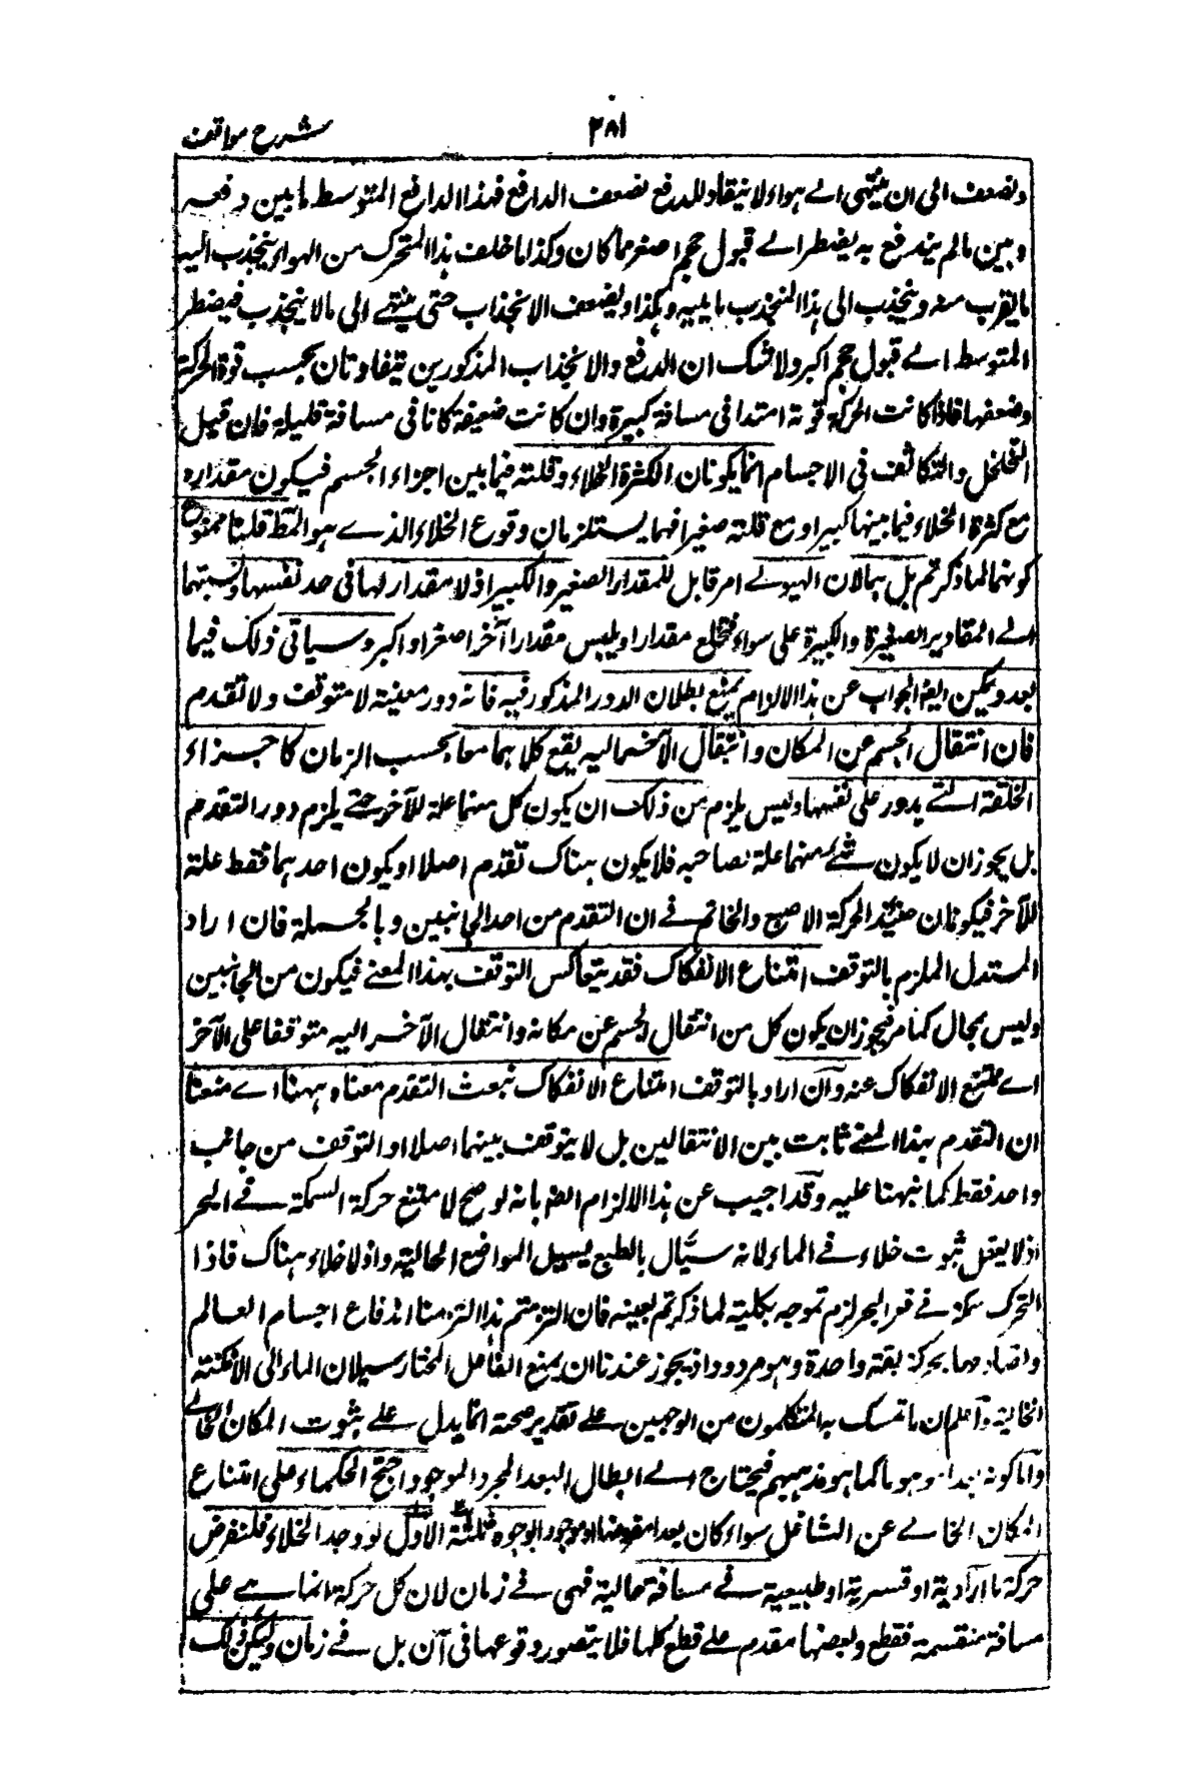 شرح مواقف
٢٨١
ويضعف الى ان ينتهى الے هواء لا ينقاد للدفع لضعف الدافع فهذا الدافع المتوسط ما بين دفعه
وبين ما لم يندفع به يضطر الے قبول حجم اصغر مما كان وكذا ما خلف هذا المتحرك من الهواء ينجذب اليه
ما يقرب منه وينجذب الى هذا المنجذب ما يليه وهكذا ويضعف الانجذاب حتى ينتهے الى ما لا ينجذب فيضطر
المتوسط الے قبول حجم اكبر ولا شك ان الدفع والانجذاب المذكورين يتفاوتان بحسب قوة الحركة
وضعفها فاذا كانت الحركة قوية امتدا فى مسافة كبيرة وان كانت ضعيفة كانا فى مسافة قليلة فان قيل
التخلخل والتكاثف فى الاجسام انما يكونان لكثرة الخلاء وقلته فيما بين اجزاء الجسم فيكون مقداره
مع كثرة الخلاء فيما بينها كبيرا ومع قلته صغيرا فهما يستلزمان وقوع الخلاء الذے هو المط قلنا ممنوع
كونهما لما ذكرتم بل هما لان الهيولے امر قابل للمقدار الصغير والكبير اذ لا مقدار لها فى حد نفسها ونسبتها
الے المقادير الصغيرة والكبيرة على سواء فتخلع مقدارا ويلبس مقدارا آخر اصغر او اكبر وسياتى ذلك فيما
بعد ويمكن ايضا الجواب عن هذا الالزام بمنع بطلان الدور المذكور فيه فانه دور معية لا متوقف ولا تقدم
فان انتقال الجسم عن المكان وانتقال الآخر اليه يقع كلاهما معا بحسب الزمان كاجزاء
الحلقة التے يدور على نفسها وليس يلزم من ذلك ان يكون كل منهما علة للآخر حتے يلزم دور التقدم
بل يجوز ان لا يكون شئ منهما علة لصاحبه فلا يكون هناك تقدم اصلا او يكون احدهما فقط علة
للآخر فيكونان حينئذ كحركة الاصبع والخاتم فے ان التقدم من احد الجانبين وبالجملة فان اراد
المستدل الملزم بالتوقف امتناع الانفكاك فقد يتعاكس التوقف بهذا المعنے فيكون من الجانبين
وليس بمحال كما مر فيجوز ان يكون كل من انتقال الجسم عن مكانه وانتقال الآخر اليه متوقفا على الآخر
اے ممتنع الانفكاك عنه وان اراد بالتوقف امتناع الانفكاك بنعت التقدم معناه ههنا اے منعنا
ان التقدم بهذا المعنے ثابت بين الانتقالين بل لا يتوقف بينهما اصلا او التوقف من جانب
واحد فقط كما نبهنا عليه وقد اجيب عن هذا الالزام ايضا بانه لو صح لامتنع حركة السمكة فے البحر
اذ لا يعقل ثبوت خلاء فے الماء لانه سيّال بالطبع يسيل المواضع الخالية واذ لا خلاء هناك فاذا
تحرك سمكة فے قعر البحر لزم تموجه بكليته لما ذكرتم بعينه فان التزمتم هذا التزمنا اندفاع اجسام العالم
وتصادمها بحركة بقة واحدة وهو مردود اذ يجوز عندنا ان يمنع الفاعل المختار سيلان الماء الى الامكنة
الخالية وآعلم ان ما تمسك به المتكلمون من الوجهين علے تقدير صحته انما يدل علے ثبوت المكان الخالے
واما كونه بعدا موهوما كما هو مذهبهم فيحتاج الے ابطال البعد المجرد الموجود واحتج الحكماء على امتناع
المكان الخالے عن الشاغل سواء كان بعدا مفروضا او موجودا بوجوه ثلثة الاول لو وجد الخلاء فلنفرض
حركة ما ارادية او قسرية او طبيعية فے مسافة خالية فهى فے زمان لان كل حركة انما هے على
مسافة منقسمة فقطع بعضها مقدم علے قطع كلها فلا يتصور وقوعها فى آن بل فے زمان وليكن ذلك